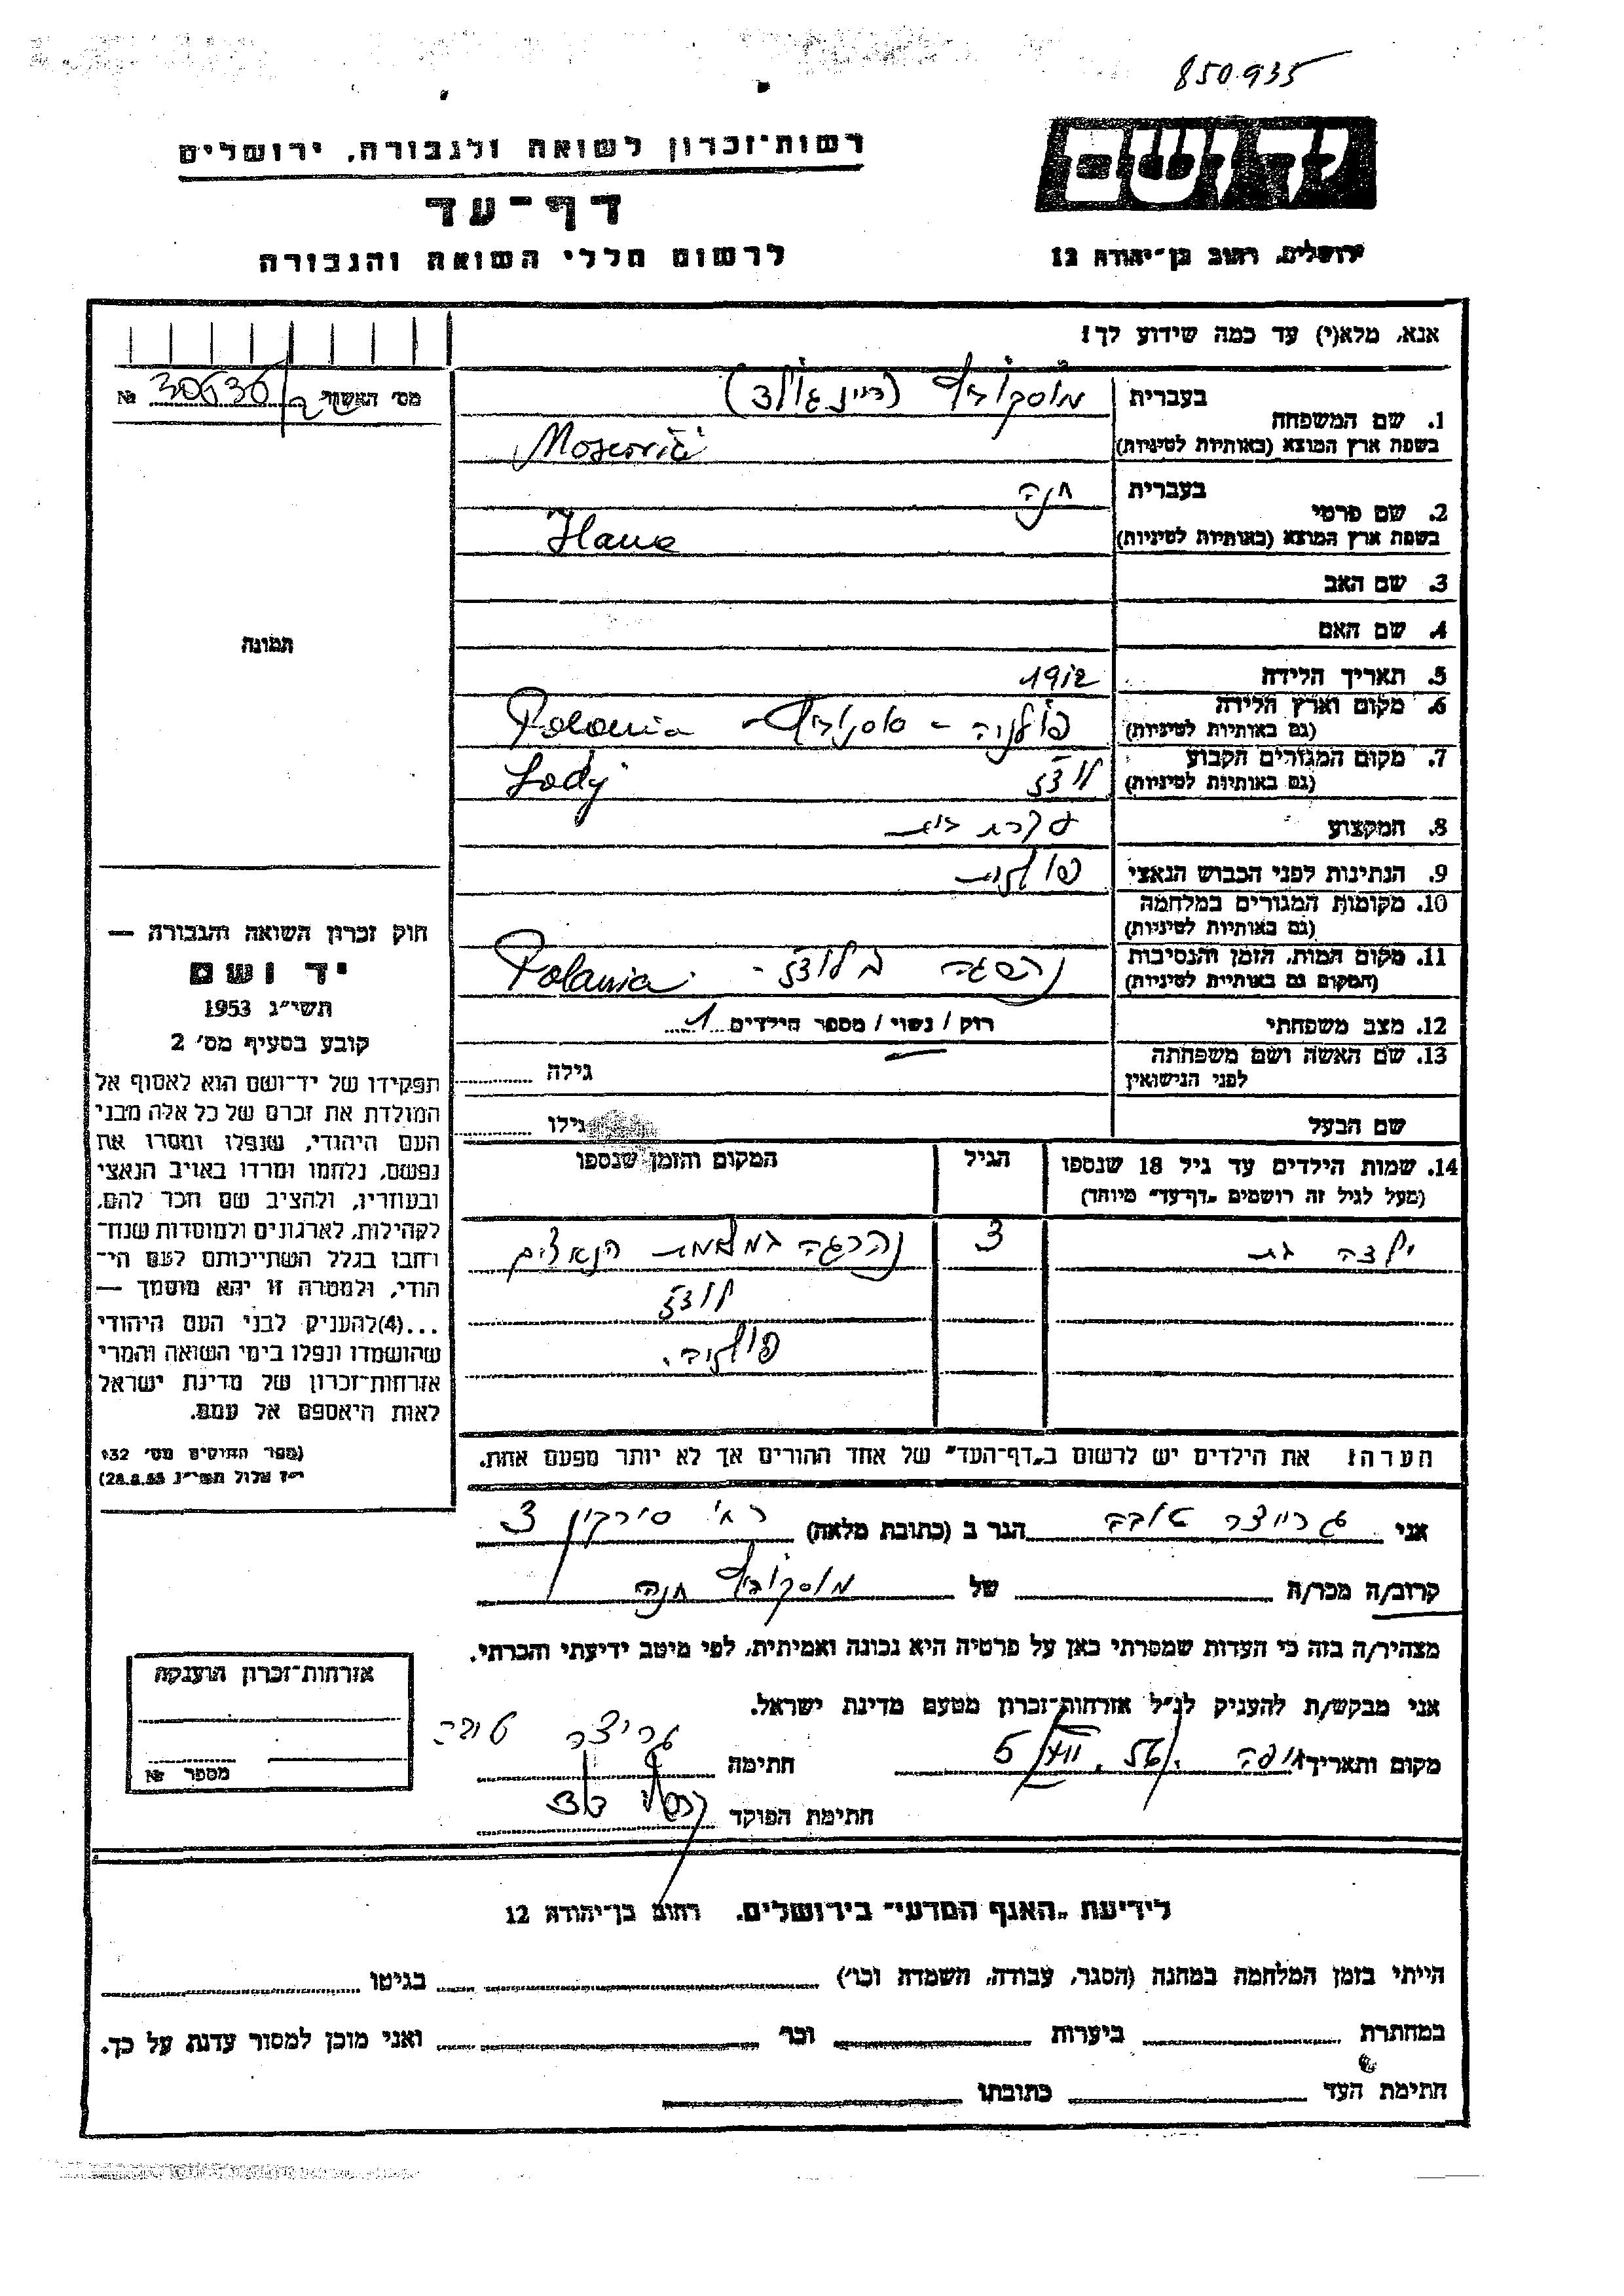 850935
יד ושם
רשות־זכרון לשואה ולגבורה, ירושלים
דף־עד
לרשום חללי השואה והגבורה
ירושלים, רחוב בן־יהודה 12
אנא, מלא(י) עד כמה שידוע לך!
מס' האשור №
1. שם המשפחה בעברית מוסקוביץ (ריינגולד)
בשפת ארץ המוצא (באותיות לטיניות) Moscovici
2. שם פרטי בעברית חנה
בשפת ארץ המוצא (באותיות לטיניות) Hana
3. שם האב
4. שם האם
5. תאריך הלידה 1912
6. מקום וארץ הלידה פולניה Polonia
(גם באותיות לטיניות)
7. מקום המגורים הקבוע לודז Lodj
(גם באותיות לטיניות)
8. המקצוע עקרת בית
9. הנתינות לפני הכבוש הנאצי פולנית
10. מקומות המגורים במלחמה
(גם באותיות לטיניות)
11. מקום המות, הזמן והנסיבות בלודז - Polania
(המקום גם באותיות לטיניות)
12. מצב משפחתי רוק / נשוי / מספר הילדים 1
13. שם האשה ושם משפחתה
לפני הנישואין גילה
שם הבעל גילו
14. שמות הילדים עד גיל 18 שנספו הגיל המקום והזמן שנספו
(מעל לגיל זה רושמים "דף־עד" מיוחד)
ילדה בת 3 נהרגה במלחמת הנאצים
לודז
פולניה.
הערה: את הילדים יש לרשום ב"דף־העד" של אחד ההורים אך לא יותר מפעם אחת.
תמונה
חוק זכרון השואה והגבורה —
יד ושם
תשי"ג 1953
קובע בסעיף מס' 2
תפקידו של יד־ושם הוא לאסוף אל
המולדת את זכרם של כל אלה מבני
העם היהודי, שנפלו ומסרו את
נפשם, נלחמו ומרדו באויב הנאצי
ובעוזריו, ולהציב שם וזכר להם,
לקהילות, לארגונים ולמוסדות שנח־
רבו בגלל השתייכותם לעם הי־
הודי, ולמטרה זו יהא מוסמך —
...(4) להעניק לבני העם היהודי
שהושמדו ונפלו בימי השואה והמרי
אזרחות־זכרון של מדינת ישראל
לאות היאספם אל עמם.
(ספר החוקים מס' 132
י"ז אלול תשי"ג 28.8.53)
אני גרייצר טובה הגר ב (כתובת מלאה) רח' סירקין 3
קרוב/ה מכר/ה של מוסקוביץ חנה
מצהיר/ה בזה כי העדות שמסרתי כאן על פרטיה היא נכונה ואמיתית, לפי מיטב ידיעתי והכרתי.
אני מבקש/ת להעניק לנ"ל אזרחות־זכרון מטעם מדינת ישראל.
מקום ותאריך חיפה 5/VIII.56 חתימה גרייצר טובה
חתימת הפוקד
אזרחות־זכרון הוענקה
מספר №
לידיעת "האגף המדעי" בירושלים, רחוב בן־יהודה 12
הייתי בזמן המלחמה במחנה (הסגר, עבודה, השמדה וכו') בגיטו
במחתרת ביערות וכו' ואני מוכן למסור עדות על כך.
חתימת העד כתובתו